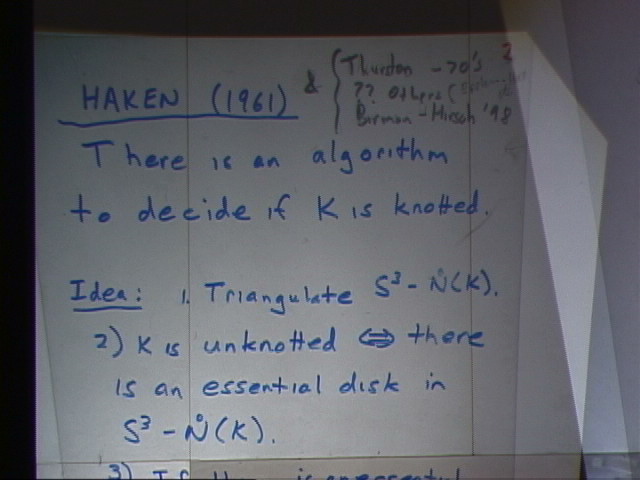 2
HAKEN (1961) & { Thurston - 70's
?? Others (
Birman - Hirsch '98
There is an algorithm
to decide if K is knotted.
Idea: 1. Triangulate S³ - N̊(K).
2) K is unknotted ⇔ there
is an essential disk in
S³ - N̊(K).
3) If there is an essential